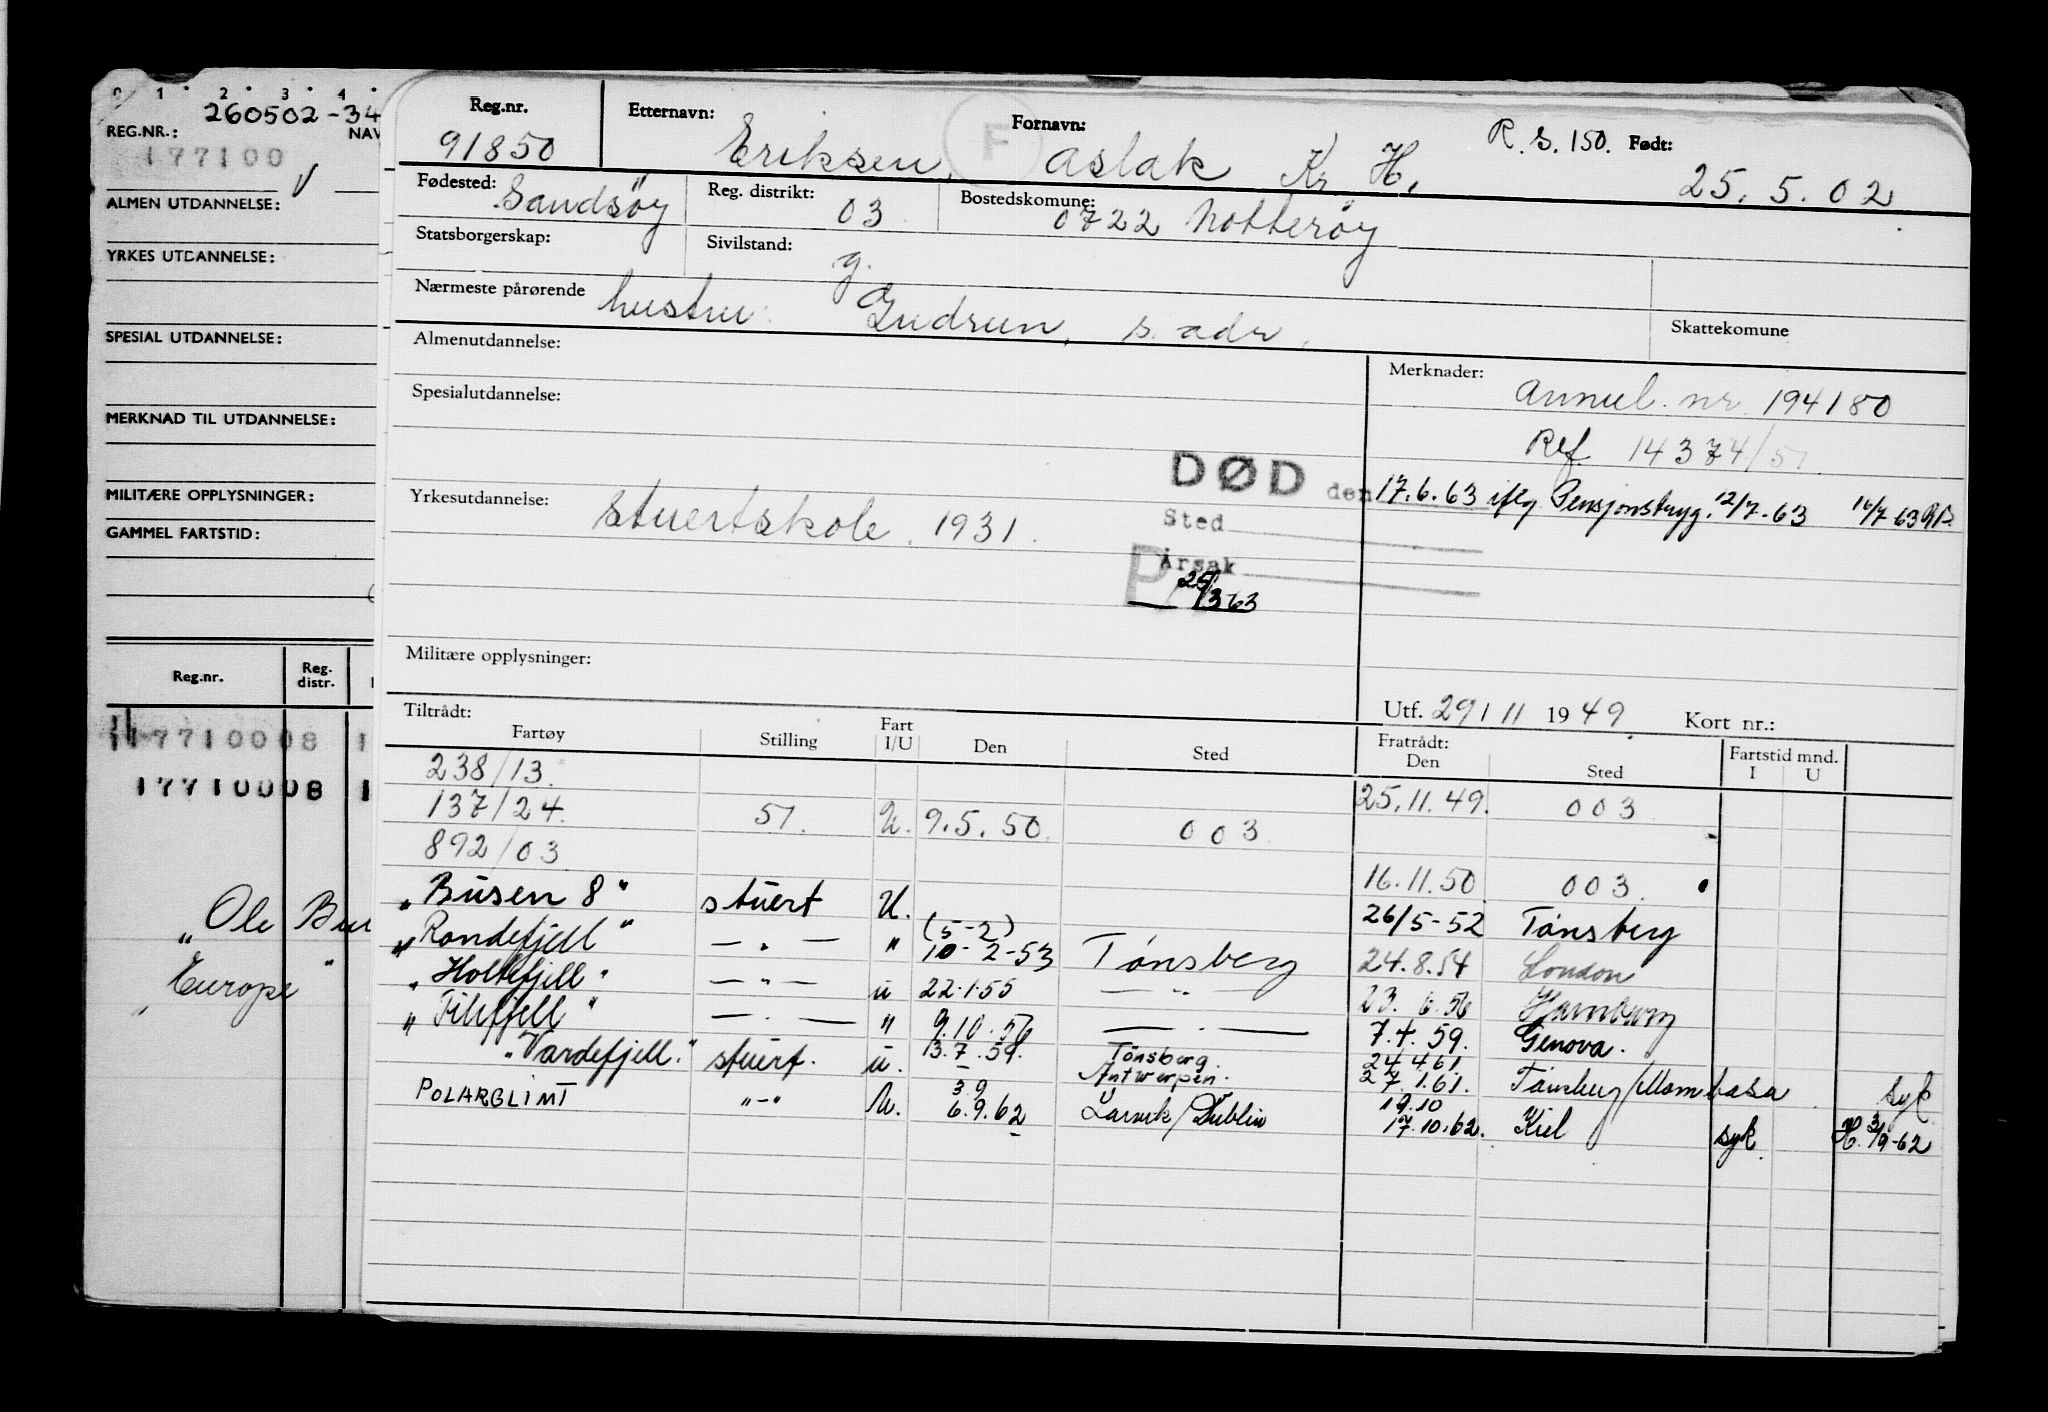 0 1 2 3 4
260502-34
REG.NR.: NAV
177100
ALMEN UTDANNELSE:
YRKES UTDANNELSE:
SPESIAL UTDANNELSE:
MERKNAD TIL UTDANNELSE:
MILITÆRE OPPLYSNINGER:
GAMMEL FARTSTID:
Reg.nr. Reg. distr.
17710008 1
17710008 1
"Ole Bu
"Europe"
Reg.nr. Etternavn: F Fornavn: R.S.150. Født:
91850 Eriksen, Aslak Kr H. 25.5.02
Fødested: Sandsöy Reg. distrikt: 03 Bostedskomune: 0722 Nötteröy
Statsborgerskap: Sivilstand: g.
Nærmeste pårørende hustru: Gudrun, s. adr. Skattekomune
Almenutdannelse: Merknader: Annul. nr. 194180
Spesialutdannelse: Ref. 14374/51
DØD den 17.6.63 iflg Pensjonstryg. 12/7-63 16/7 63
Yrkesutdannelse: Stuertskole. 1931. Sted
P Årsak
25/3 63
Militære opplysninger:
Tiltrådt: Utf. 29/11 1949. Kort nr.:
Fartøy Stilling Fart I/U Den Sted Fratrådt: Den Sted Fartstid mnd. I U
238/13. 25.11.49. 003
137/24. 51. U. 9.5.50. 003
892/03 16.11.50 003.
"Busen 8" stuert U. 26/5-52 Tønsberg
"Rondefjell" — " — " (5-2) 10-2-53 Tønsberg 24.8.54 London
"Holtefjell" — " — u 22.1.55 — " — 23.6.56 Hamburg
"Filefjell" — " — " 9.10.56 — " — 7.4.59. Genova.
"Vardefjell." stuert. u. 13.7.59. Tönsberg Antwerpen. 24.4.61 27.1.61. Tönsberg/Mombasa syk
POLARGLIMT "-" U. 3.9 6.9.62 Larvik/Dublin 19.10 17.10.62. Kiel syk H. 3/9-62